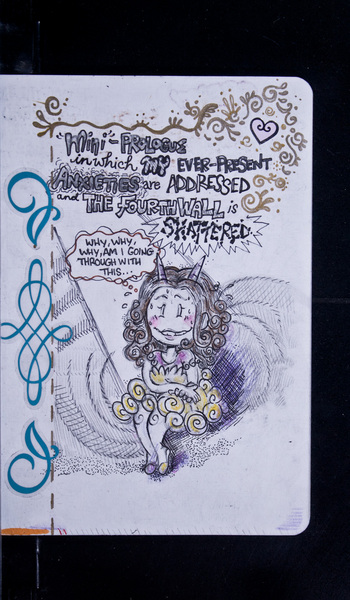 "Mini" PROLOGUE
in which MY EVER-PRESENT
ANXIETIES are ADDRESSED
and THE FOURTH WALL is
SHATTERED.
WHY, WHY,
WHY, AM I GOING
THROUGH WITH
THIS...